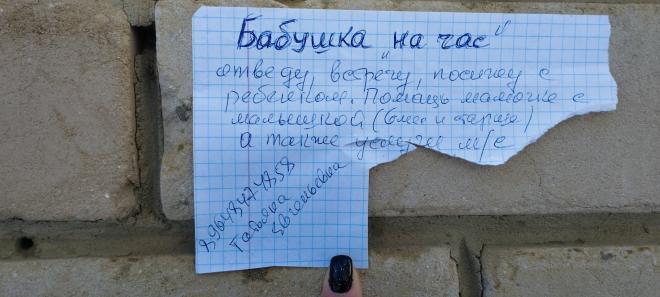 Бабушка "на час"
отведу, встречу, посижу с
ребёнком. Помощь мамочке с
малышкой (6 мес и старше)
а также услуги м/с
89648474858
Татьяна
Евгеньевна